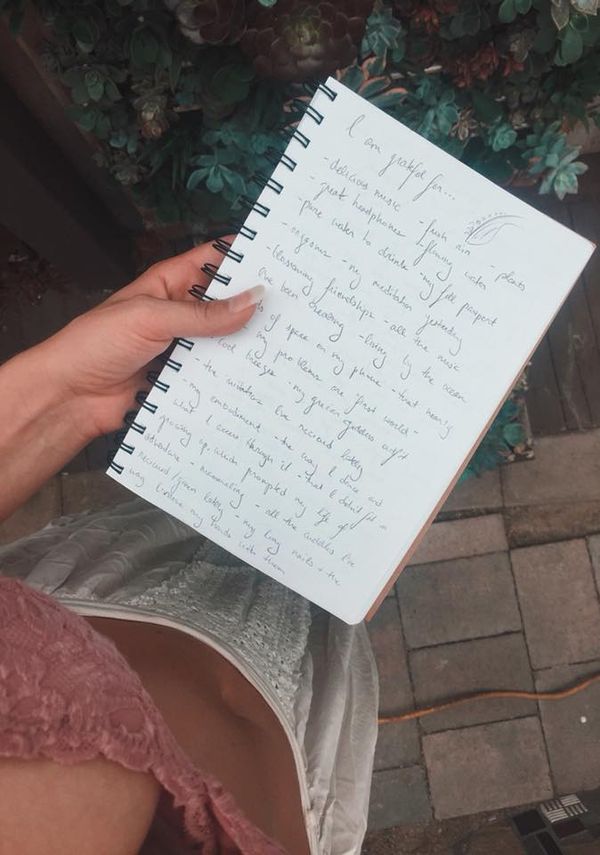 I am grateful for...
- delicious music - fresh - plants
- great headphones - flowing water
- pure water to drink - my full passport
- orgasms - my meditation yesterday
- blossoming friendships - all the music
I've been creating - living by the ocean
of space on my phone - that nearly
my problems are "first world" -
cool breeze - my green goddess outfit
- the invitations I've received lately
- my embodiment - the way I dance and
what I access through it - that I didn't fit in
growing up, which prompted my life of
adventure - - all the cuddles I've
received/given lately - my long nails + the
way I dance my hands with them